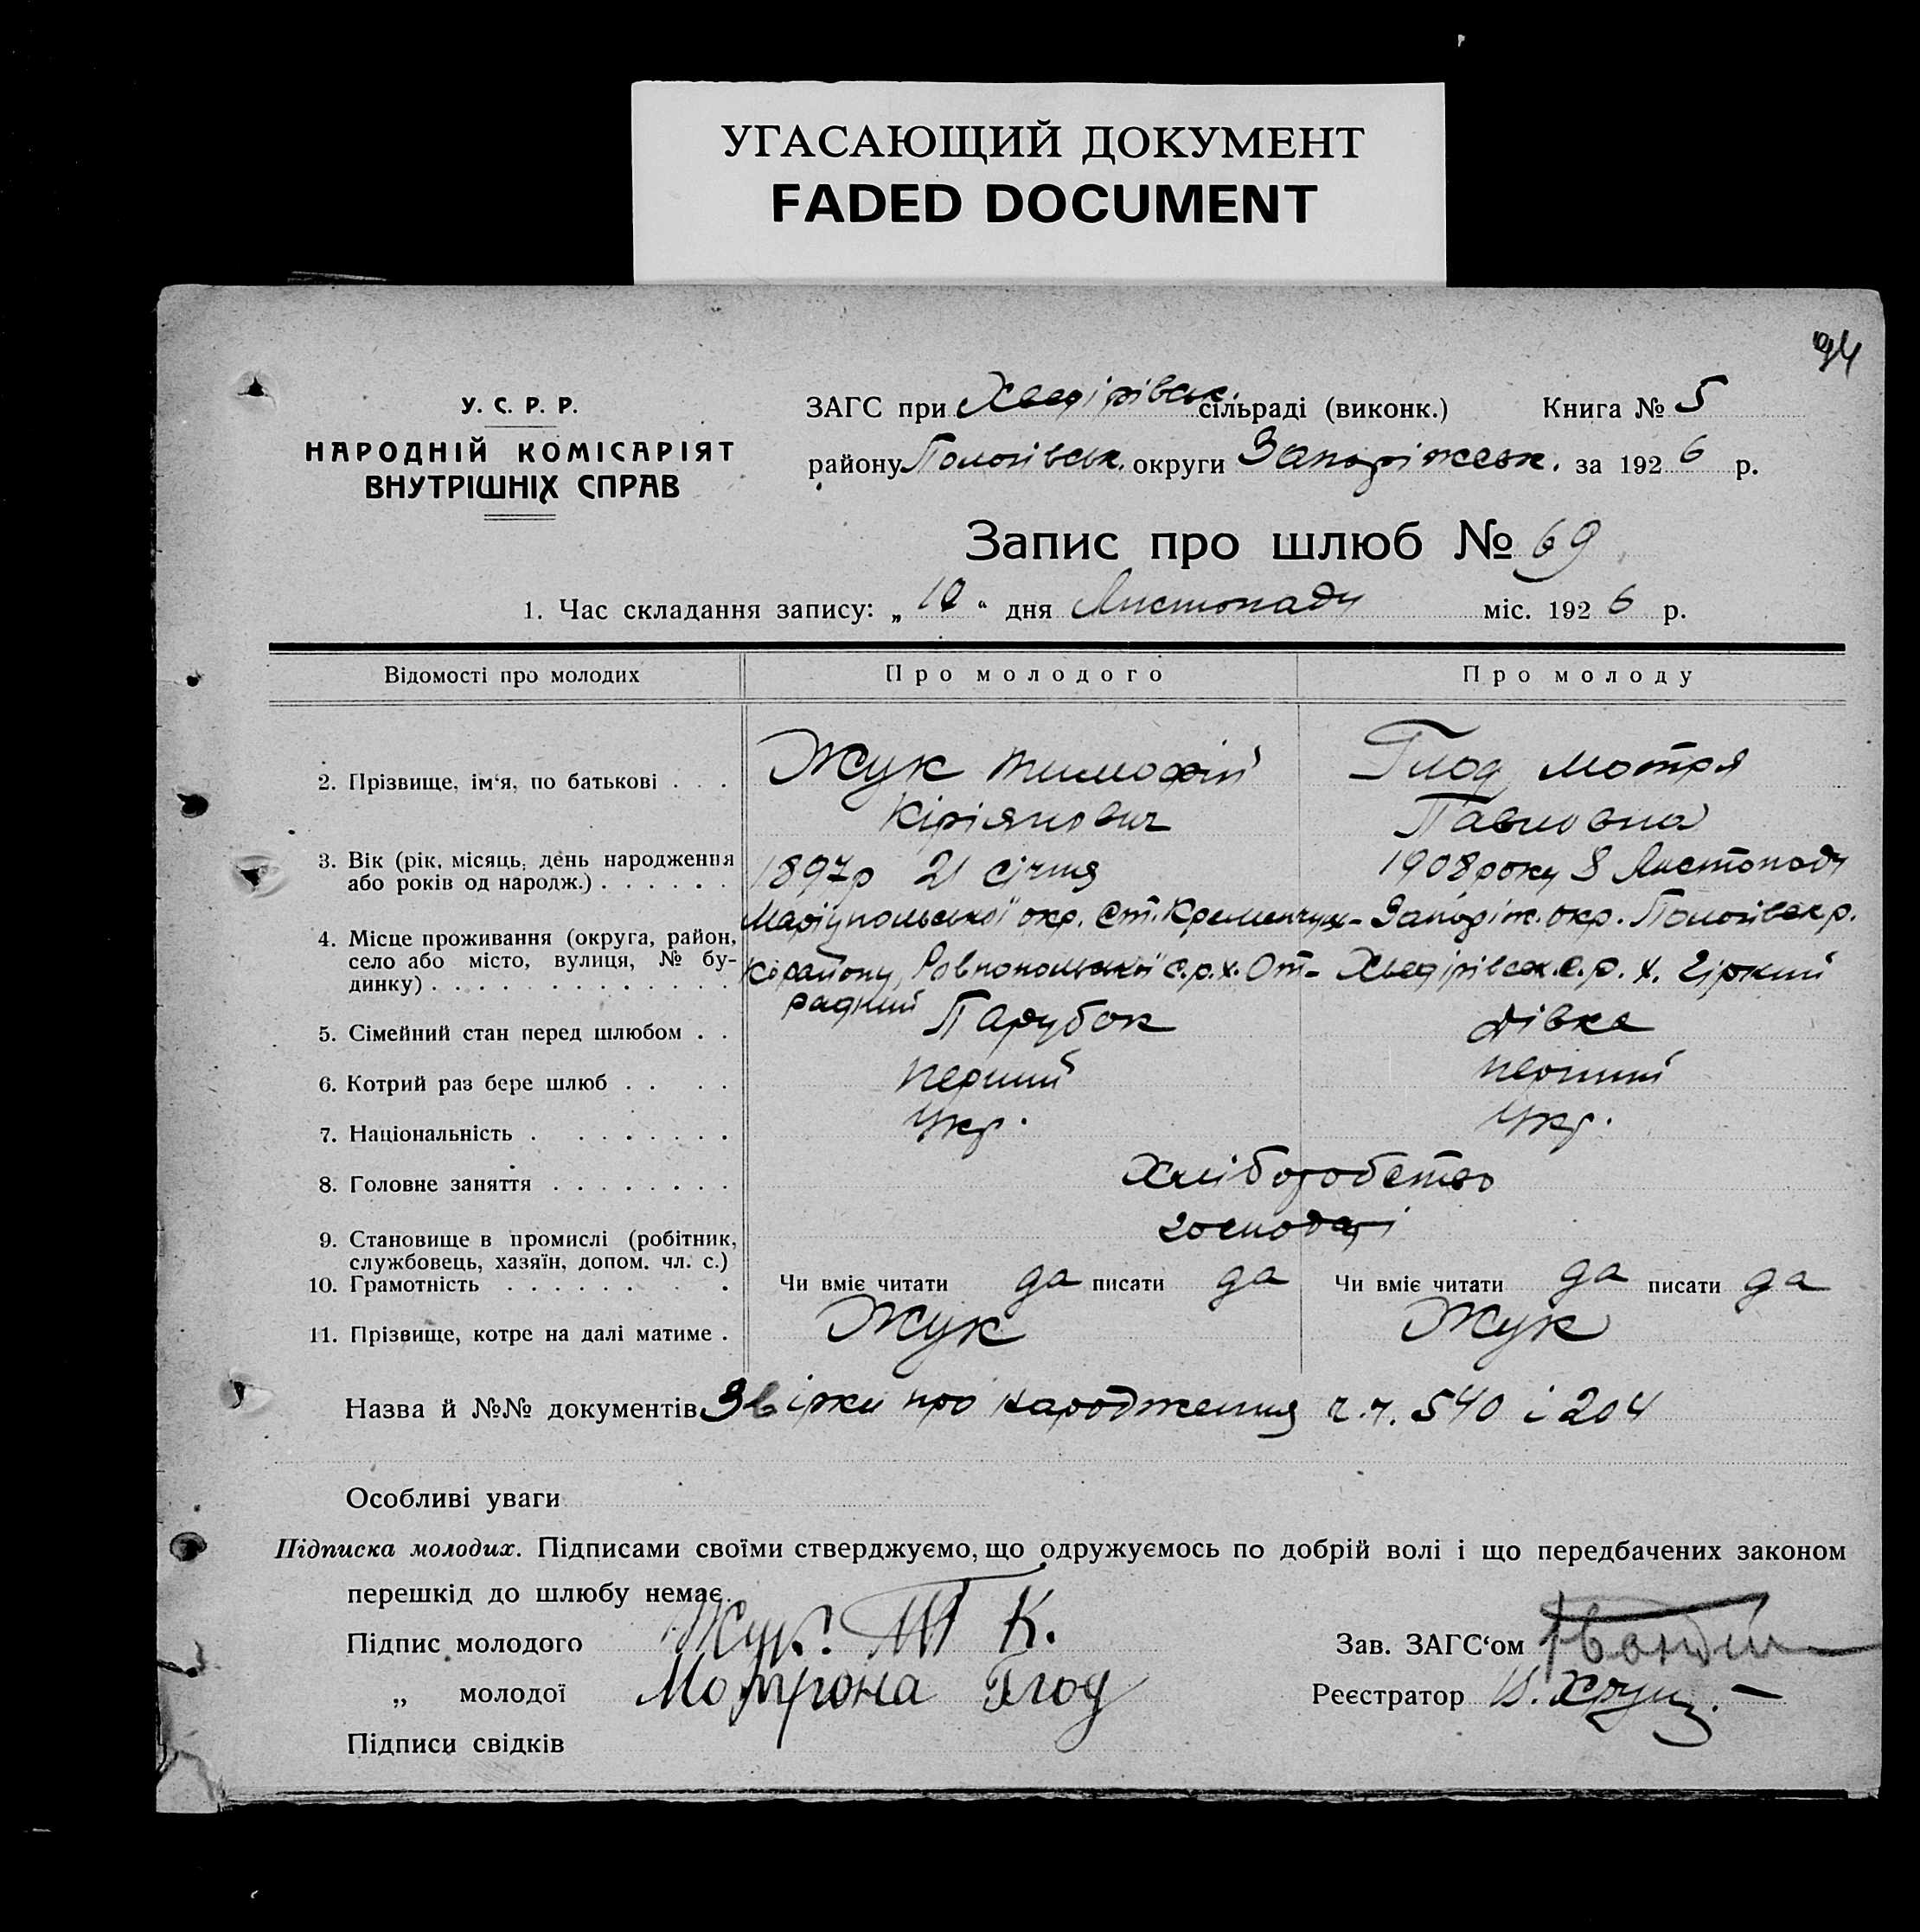 УГАСАЮЩИЙ ДОКУМЕНТ
FADED DOCUMENT
94
У. С. Р. Р.
НАРОДНІЙ КОМІСАРІЯТ
ВНУТРІШНІХ СПРАВ
ЗАГС при Хведірівськ. сільраді (виконк.) Книга № 5
району Пологівськ. округи Запоріжськ. за 1926 р.
Запис про шлюб № 69
1. Час складання запису: „10“ дня Листопаду міс. 1926 р.
Відомості про молодих Про молодого Про молоду
2. Прізвище, ім‘я, по батькові . . . Жук Тимофій Глод Мотря
Кіріянович Павловна
3. Вік (рік, місяць, день народження 1897р 21 січня 1908 року 8 Листопаду
або років од народж.) . . . . . .
Маріупольської окр. Ст. Кременчук- Запоріж. окр. Пологівск р.
4. Місце проживання (округа, район,
село або місто, вулиця, № бу- району, Ровнопольської с.р. х. От- Хведірівськ. с. р. х. Гіркий
динку) . . . . . . . . . . . . . радний
5. Сімейний стан перед шлюбом . . Парубок дівка
6. Котрий раз бере шлюб . . . . перший перший
7. Національність . . . . . . . Укр. Укр.
8. Головне заняття . . . . . . . . Хліборобство
9. Становище в промислі (робітник, господарі
службовець, хазяїн, допом. чл. с.)
10. Грамотність . . . . . . . . Чи вміє читати да писати да Чи вміє читати да писати да
11. Прізвище, котре на далі матиме . Жук Жук
Назва й №№ документів Звірки про народження ч.ч. 540 і 204
Особливі уваги
Підписка молодих. Підписами своїми стверджуємо, що одружуємось по добрій волі і що передбачених законом
перешкід до шлюбу немає.
Підпис молодого Жук. Т К. Зав. ЗАГС‘ом
„ молодої Мотрона Глод Реєстратор
Підписи свідків